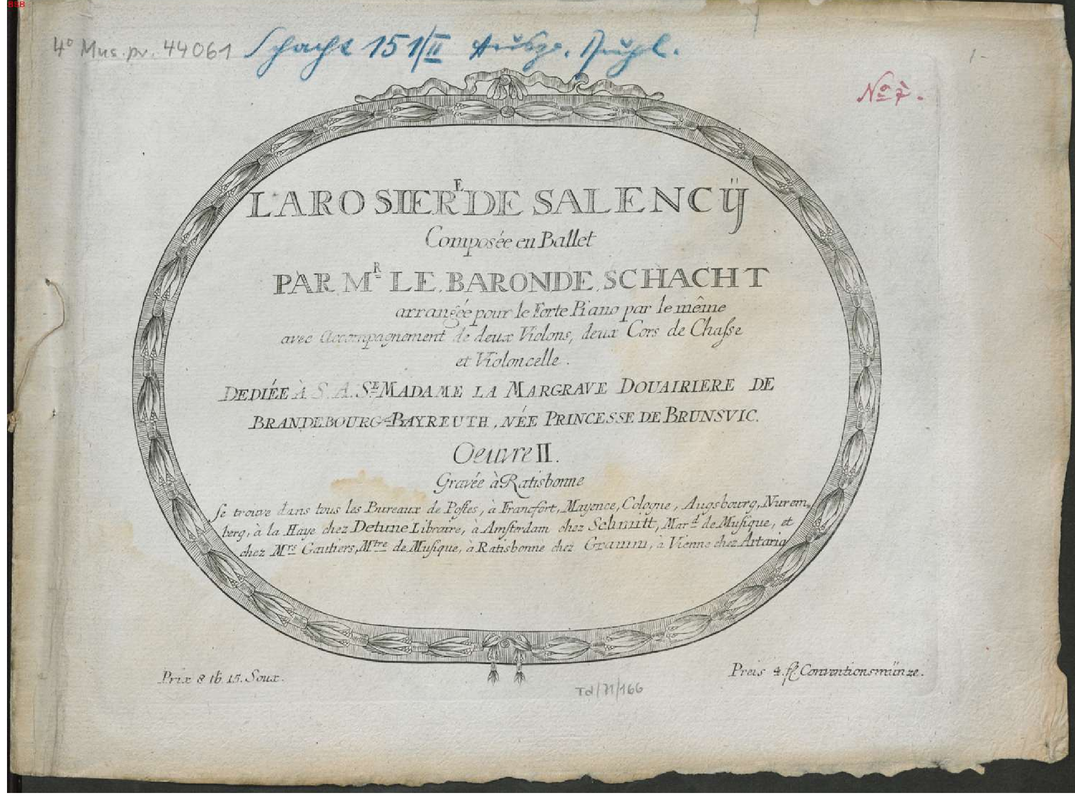 BSB
4° Mus. pr. 44061 Schacht 151/II
No 7.
1-
LA ROSIERE DE SALENCIJ
Composée en Ballet
PAR MR LE BARON DE SCHACHT
arrangée pour le Forte Piano par le même
avec Accompagnement de deux Violons, deux Cors de Chaſse
et Violoncelle.
DEDIÉE À S. A. SE MADAME LA MARGRAVE DOUAIRIERE DE
BRANDEBOURG-BAYREUTH, NÉE PRINCESSE DE BRUNSVIC.
Oeuvre II.
Gravée à Ratisbonne
ſe trouve dans tous les Bureaux de Poſtes, à Francfort, Mayence, Cologne, Augsbourg, Nurem,
berg, à la Haye chez Detune Libraire, à Amſterdam chez Schmitt, Mard de Muſique, et
chez Mrs Gautiers, Mtre de Muſique, à Ratisbonne chez Gramm, à Vienne chez Artaria
Prix 8 lb 15. Soux.
Preis 4. fl Conventionsmünze.
Td/71/166